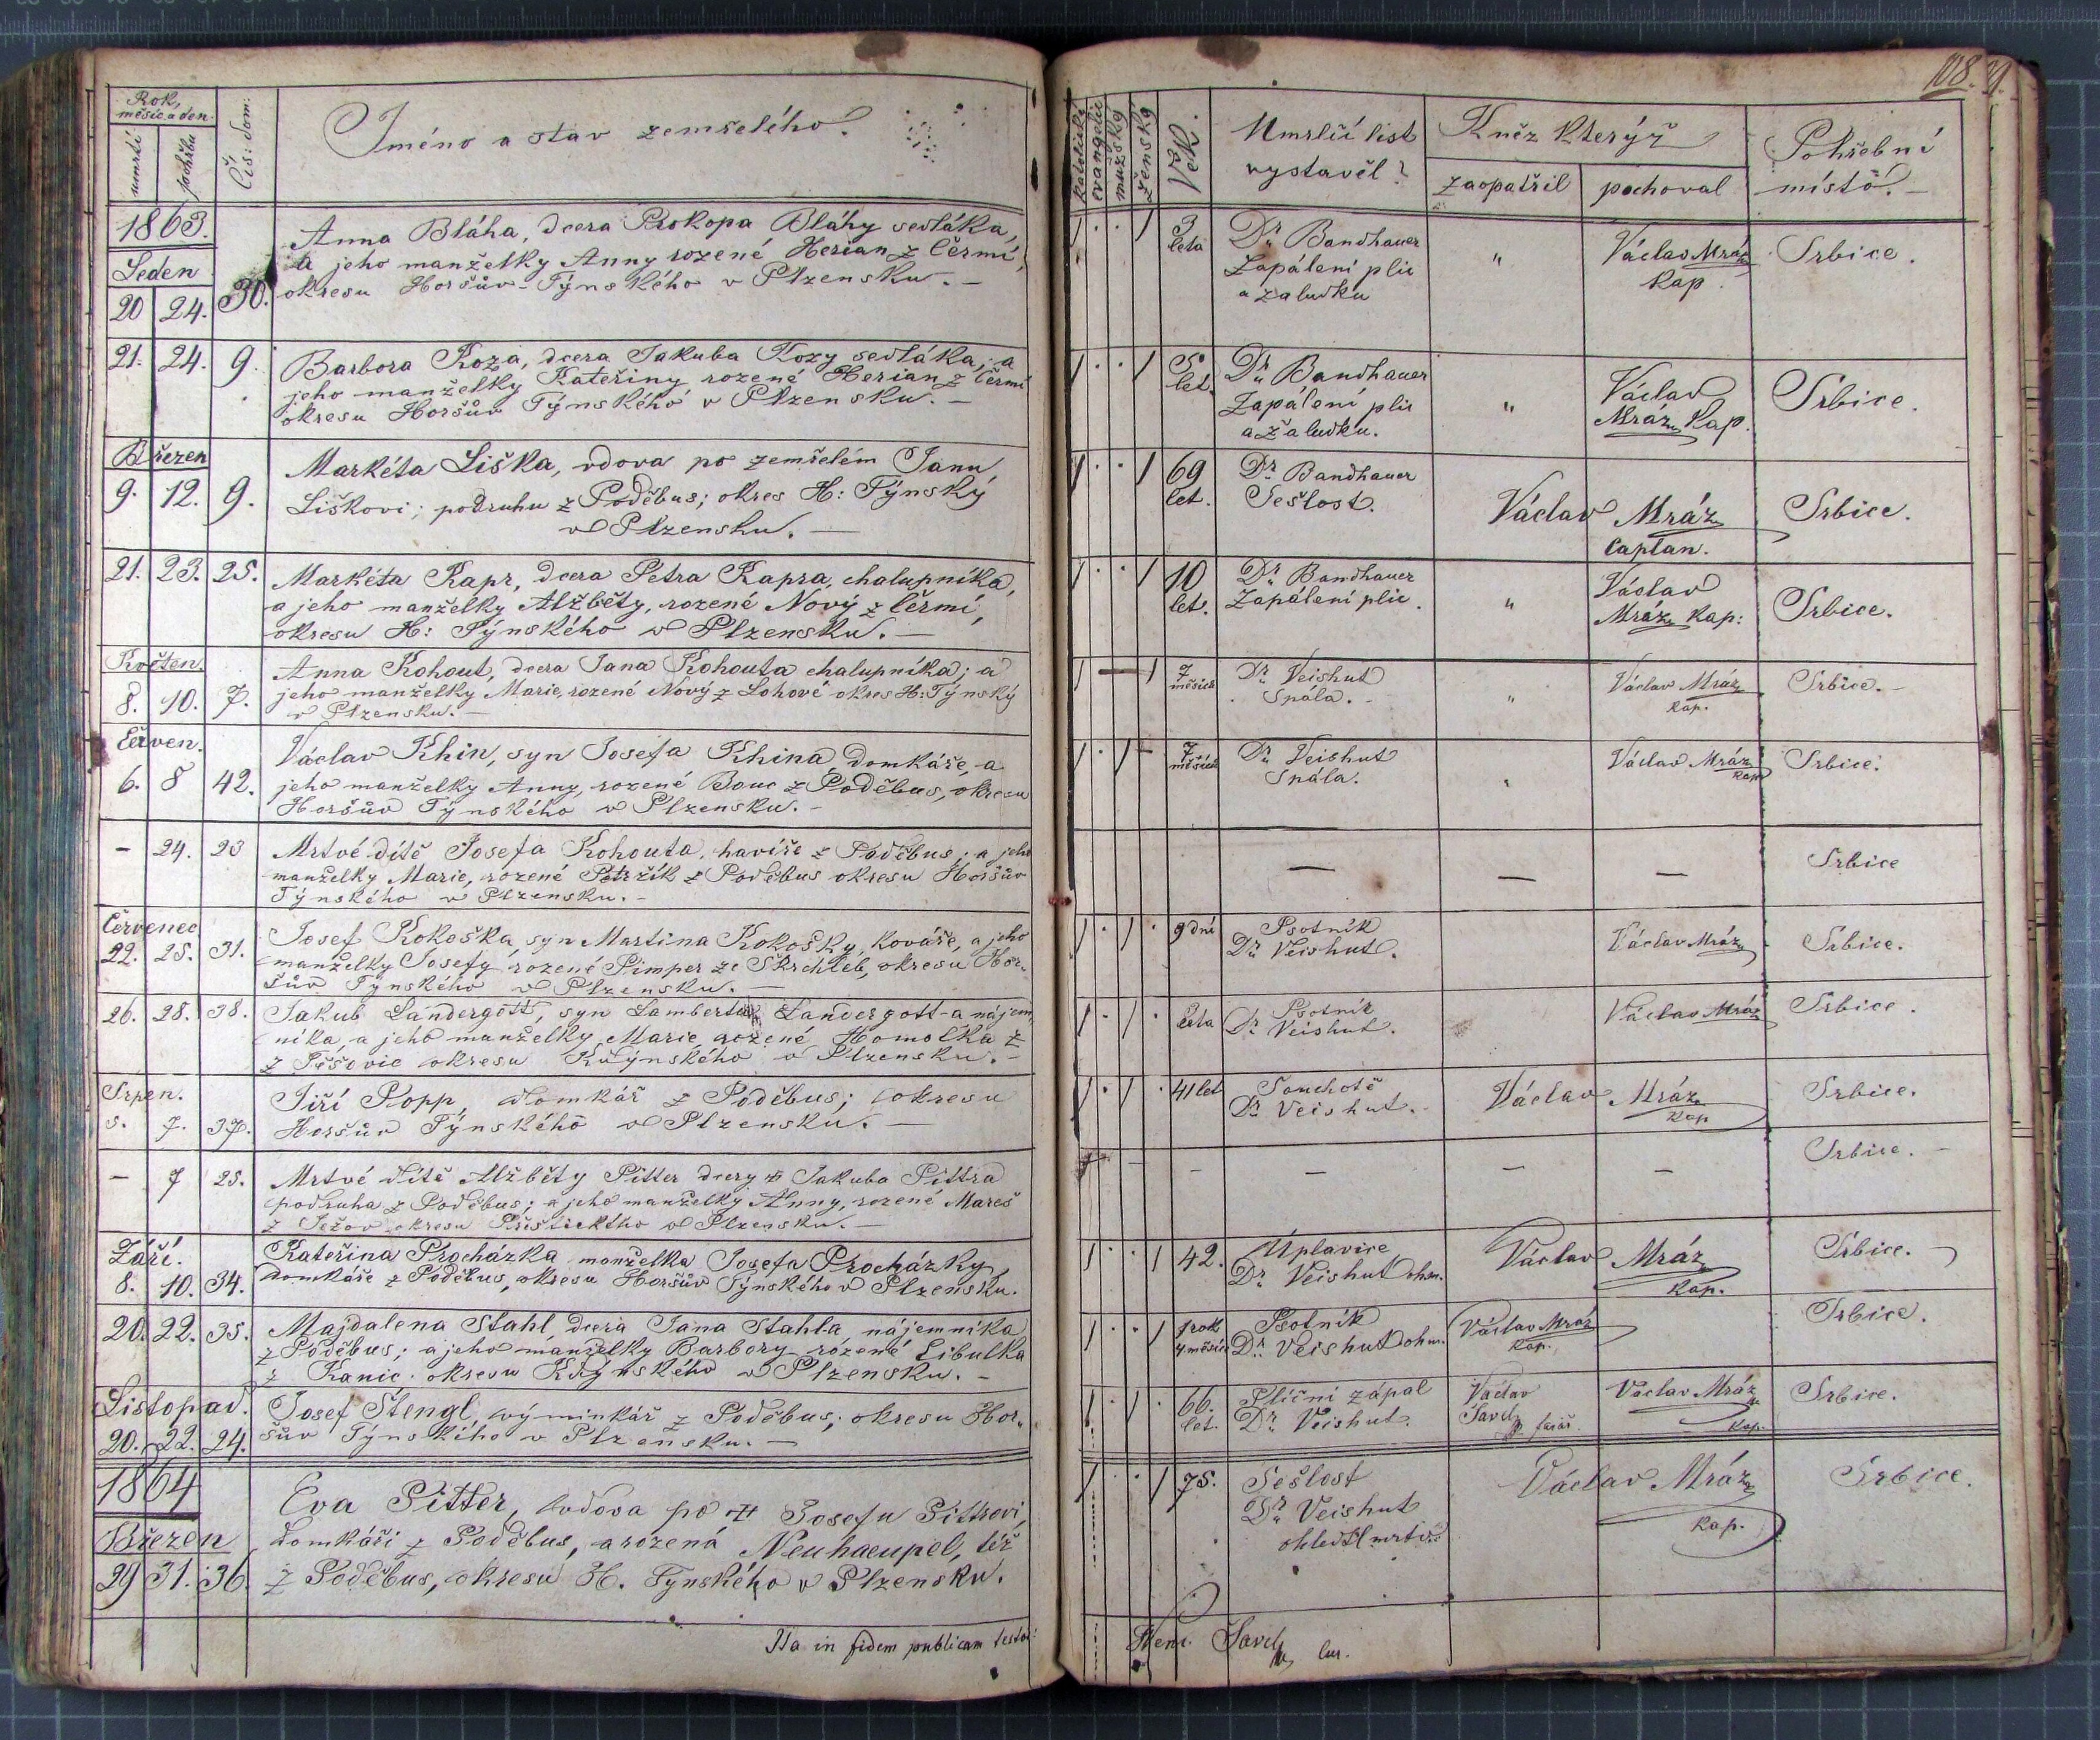 108.
Rok,
měsíc a den.
umrtí
pohřbu
Čís: dom:
Jméno a stav zemřelého.
katolické
evangelic
mužský
ženský
Věk.
Umrlčí list
vystavěl?
Kněz kterýž
zaopatřil
pochoval
Pohřební
místo.
1863.
Leden
20 24. 30.
Anna Bláha, dcera Prokopa Bláhy sedláka,
a jeho manželky Anny rozené Herian z Čermí,
okresu Horšův-Týnského v Plzensku. –
3
leta
Dr. Bandhauer
Zapálení plic
a žaludku
"
Václav Mráz
Kap.
Srbice.
21. 24. 9.
Barbora Koza, dcera Jakuba Kozy sedláka, a
jeho manželky Kateřiny rozené Herian z Čermí
okresu Horšův Týnského v Plzensku. –
5
let.
Dr. Bandhauer
Zapálení plic
a žaludku.
"
Václav
Mráz Kap.
Srbice.
Březen
9. 12. 9.
Markéta Liška, vdova po zemřelém Janu
Liškovi; podruhu z Poděbus; okres H: Týnský
v Plzensku. –
69
let.
Dr. Bandhauer
Sešlost.
Václav Mráz
Caplan.
Srbice.
21. 23. 25.
Markéta Kapr, dcera Petra Kapra, chalupníka,
a jeho manželky Alžběty, rozené Nový z Čermí,
okresu H: Týnského v Plzensku. –
10
let.
Dr. Bandhauer
Zapálení plic.
"
Václav
Mráz Kap:
Srbice.
Květen.
8. 10. 7.
Anna Kohout, dcera Jana Kohouta chalupníka; a
jeho manželky Marie, rozené Nový z Lohové okres H: Týnský
v Plzensku. –
7
měsíců
Dr. Veishut
Spála. –
"
Václav Mráz
Kap.
Srbice. –
Červen.
6. 8 42.
Václav Khin, syn Josefa Khina domkáře, a
jeho manželky Anny, rozené Bouc z Poděbus, okresu
Horšův Týnského v Plzensku. –
7
měsíců
Dr. Veishut
Spála.
Václav Mráz
Kap
Srbice.
– 24. 23
Mrtvé dítě Josefa Kohouta, havíře z Poděbus; a jeho
manželky Marie, rozené Petržík z Poděbus okresu Horšův
Týnského v Plzensku. –
– – –
Srbice
Červenec
22. 25. 31.
Josef Kokoška, syn Martina Kokošky, kováře, a jeho
manželky Josefy rozené Pimper ze Škrchleb, okresu Hor-
šův Týnského v Plzensku. –
9 dní
Psotník
Dr. Veishut.
Václav Mráz
Srbice.
26. 28. 38.
Jakub Landergott, syn Lamberta Landergott-a nájem-
níka, a jeho manželky Marie, rozené Homolka z
z Těšovic okresu Kdýnského v Plzensku. –
2
leta
Psotník
Dr. Veishut.
Václav Mráz
Srbice.
Srpen.
5. 7. 37.
Jiří Popp, domkář z Poděbus; okresu
Horšův Týnského v Plzensku. –
41 let
Souchotě
Dr. Veishut.
Václav Mráz
Kap
Srbice.
– 7 25.
Mrtvé dítě Alžběty Pitter dcery Jakuba Pittra
podruha z Poděbus; a jeho manželky Anny, rozené Mareš
z Ježov okresu Přeštického v Plzensku. –
– – – –
Srbice. –
Září.
8. 10. 34.
Kateřina Procházka manželka Josefa Procházky,
domkáře z Poděbus, okresu Horšův Týnského v Plzensku.
42.
Úplavice
Dr. Veishut ohm.
Václav Mráz
Kap.
Srbice.
20. 22. 35.
Majdalena Stahl dcera Jana Stahla nájemníka
z Poděbus; a jeho manželky Barbory rozené Cibulka
z Kanic. okresu Kdýnského v Plzensku. –
1 rok
4 měsíce
Psotník
Dr. Veishut ohm.
Václav Mráz
Kap.
Srbice.
Listopad.
20. 22. 24.
Josef Štengl, výminkář z Poděbus; okresu Hor-
šův Týnského v Plzensku. –
66.
let.
Plicní zápal
Dr. Veishut.
Václav
farář.
Václav Mráz
Kap.
Srbice.
1864
Březen
29 31. 36.
Eva Pitter, vdova po Josefu Pittrovi,
domkáři z Poděbus, a rozená Neuhaeupel, též
z Poděbus, okresu H. Týnského v Plzensku.
75.
Sešlost
Dr. Veishut
Václav Mráz
Kap.
Srbice.
Ita in fidem publicam testor: